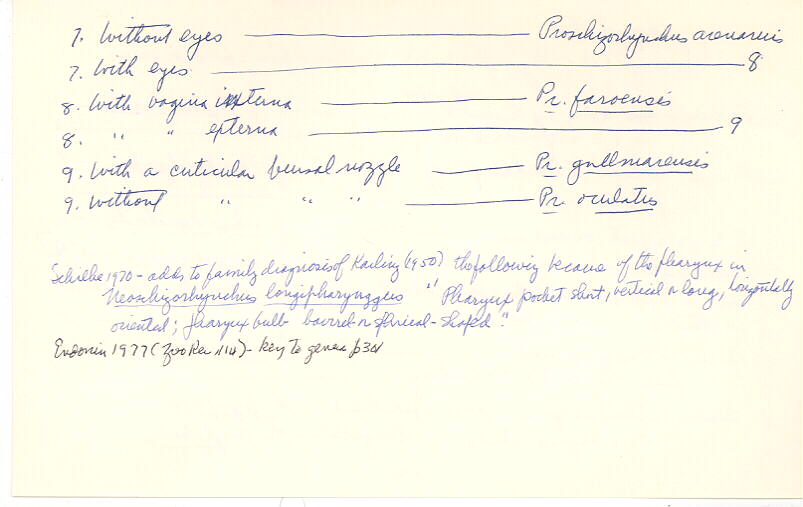 7. Without eyes ——— Proschizorhynchus arenarius
7. With eyes ——— 8
8. With vagina interna ——— Pr. faroensis
8. " " externa ——— 9
9. With a cuticular bursal nozzle ——— Pr. gullmarensis
9. Without " " " ——— Pr. oculatus
Schilke 1970 - adds to family diagnosis of Karling (1950) the following because of the pharynx in
Neoschizorhynchus longipharyngeus "Pharynx pocket short, vertical or long, horizontally
oriented; pharynx bulb barrel or spherical-shaped."
Evdonin 1977 (Zoo Rec 114) - key to genera p 301